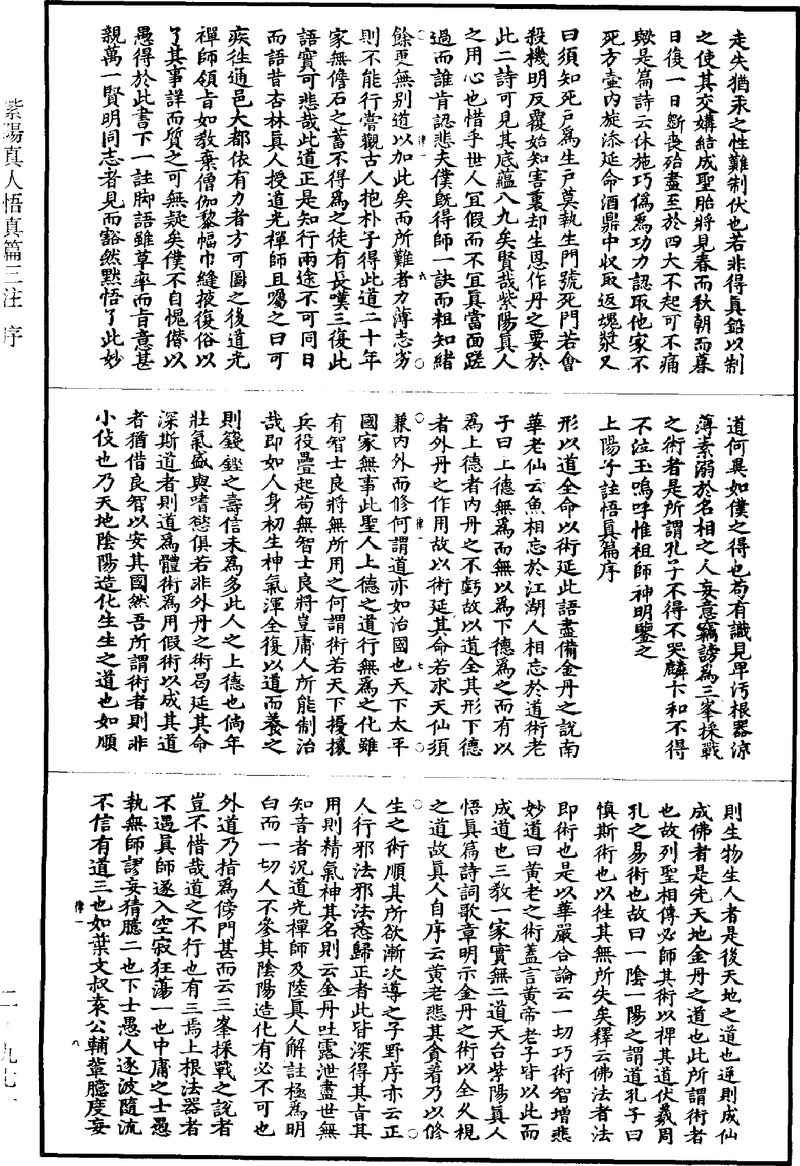 走失猶汞之性難制伏也若非得眞鉛以制
之使其交媾結成聖胎將見春而秋朝而暮
日復一日斲喪殆盡至於四大不起可不痛
歟是篇詩云休施巧僞爲功力認取他家不
死方壺內旋添延命酒鼎中收取返魂漿又
曰須知死戶爲生戶莫執生門號死門若會
殺機明反覆始知害裏却生恩作丹之要於
此二詩可見其底蘊八九矣賢哉紫陽眞人
之用心也惜乎世人宜假而不宜眞當面蹉
過而誰肯認悲夫僕旣得師一訣而粗知緒
餘更無別道以加此矣而所難者力薄志劣
則不能行嘗觀古人抱朴子得此道二十年
家無儋石之蓄不得爲之徒有長嘆三復此
語實可悲哉此道正是知行兩途不可同日
而語昔杏林眞人授道光禪師且囑之曰可
疾徃通邑大都依有力者方可圖之後道光
禪師領旨如教棄僧伽黎幅巾縫掖復俗以
了其事詳而質之可無疑矣僕不自愧僭以
愚得於此書下一註脚語雖草率而旨意甚
親萬一賢明同志者見而豁然默悟了此妙
道何異如僕之得也苟有識見卑污根器涼
薄素溺於名相之人妄意竊謗爲三峯採戰
之術者是所謂孔子不得不哭麟卞和不得
不泣玉嗚呼惟祖師神明鑒之
上陽子註悟眞篇序
形以道全命以術延此語盡備金丹之說南
華老仙云魚相忘於江湖人相忘於道術老
子曰上德無爲而無以爲下德爲之而有以
爲上德者內丹之不虧故以道全其形下德
者外丹之作用故以術延其命若求天仙須
兼內外而修何謂道亦如治國也天下太平
國家無事此聖人上德之道行無爲之化雖
有智士良將無所用之何謂術若天下擾攘
兵役疊起苟無智士良將豈庸人所能制治
哉即如人身初生神氣渾全復以道而養之
則籛鏗之壽信未爲多此人之上德也倘年
壯氣盛與嗜慾俱若非外丹之術曷延其命
深斯道者則道爲體術爲用假術以成其道
者猶借良智以安其國然吾所謂術者則非
小伎也乃天地陰陽造化生生之道也如順
則生物生人者是後天地之道也逆則成仙
成佛者是先天地金丹之道也此所謂術者
也故列聖相傳必師其術以裨其道伏羲周
孔之易術也故曰一陰一陽之謂道孔子曰
慎斯術也以徃其無所失矣釋云佛法者法
即術也是以華嚴合論云一切巧術智增悲
妙道曰黃老之術蓋言黃帝老子皆以此而
成道也三教一家實無二道天台紫陽眞人
悟眞篇詩詞歌章明示金丹之術以全久視
之道故眞人自序云黃老悲其貪着乃以修
生之術順其所欲漸次導之子野序亦云正
人行邪法邪法悉歸正者此皆深得其旨其
用則精氣神其名則云金丹吐露泄盡世無
知音者況道光禪師及陸眞人解註極爲明
白而一切人不參其陰陽造化有必不可也
外道乃指爲傍門甚而云三峯採戰之說者
豈不惜哉道之不行也有三焉上根法器者
不遇眞師遂入空寂狂蕩一也中庸之士愚
執無師謬妄猜臆二也下士愚人逐波隨流
不信有道三也如葉文叔袁公輔輩臆度妄
紫陽真人悟真篇三注 序
二—九七一
律一
六
律一
七
律一
八